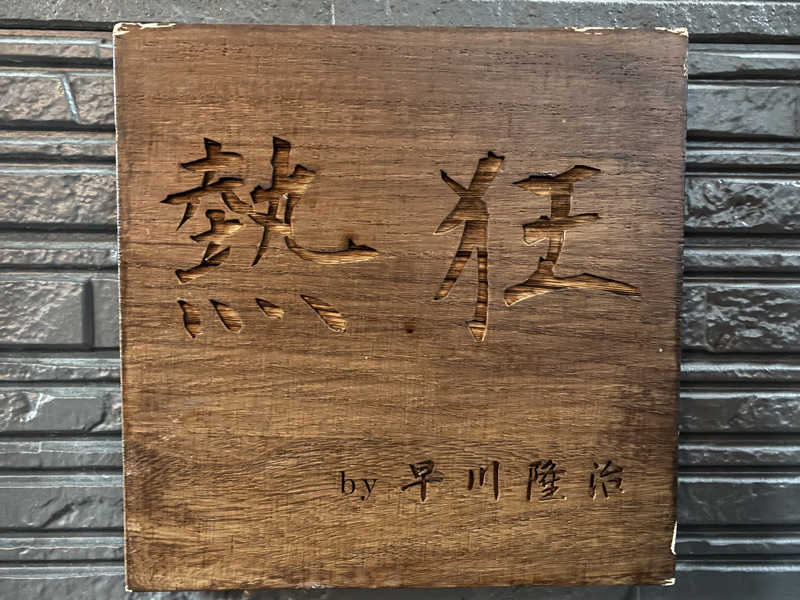 熱狂
by 早川隆治